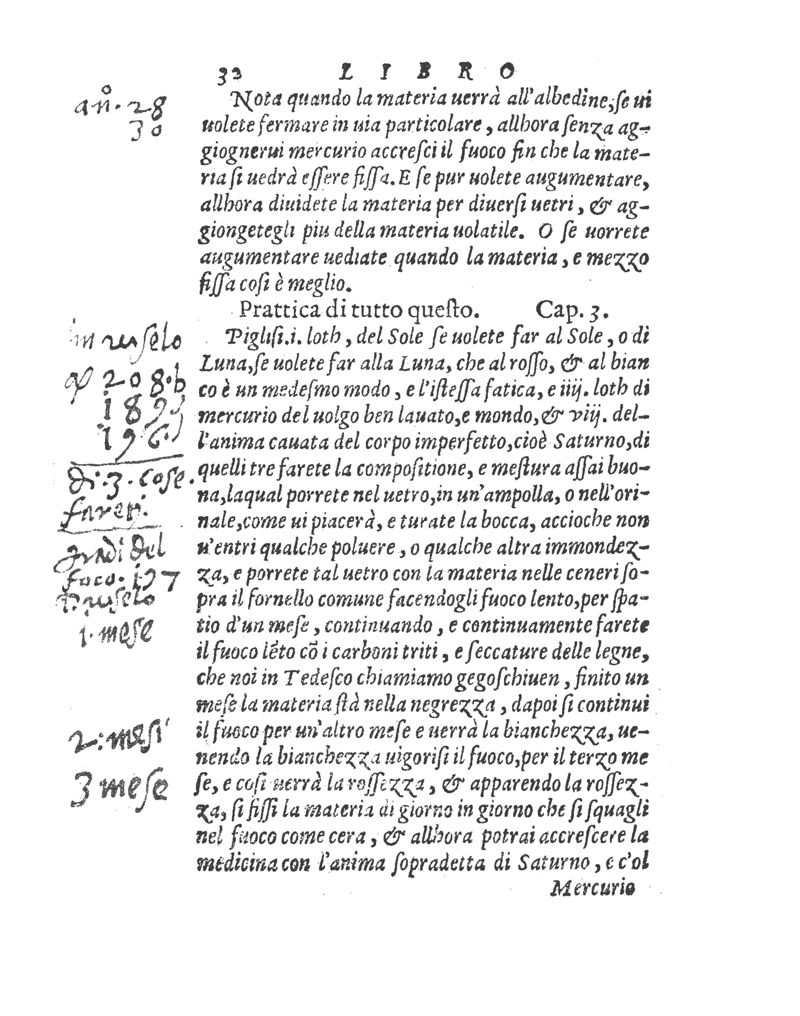 32 LIBRO
Nota quando la materia uerrà all'albedine, ſe ui
uolete fermare in uia particolare, allhora ſenza ag-
giognerui mercurio accreſci il fuoco fin che la mate-
ria ſi uedrà eſſere fiſſa. E ſe pur uolete augumentare,
allhora diuidete la materia per diuerſi uetri, & ag-
giongetegli piu della materia uolatile. O ſe uorrete
augumentare uediate quando la materia, e mezzo
fiſſa coſi è meglio.
Prattica di tutto queſto. Cap. 3.
Pigliſi.i. loth, del Sole ſe uolete far al Sole, o di
Luna,ſe uolete far alla Luna, che al roſſo, & al bian
co è un medeſmo modo, e l'iſteſſa fatica, e iiij. loth di
mercurio del uolgo ben lauato,e mondo,& viij. del-
l'anima cauata del corpo imperfetto,cioè Saturno,di
quelli tre farete la compoſitione, e meſtura aſſai buo-
na,laqual porrete nel uetro,in un'ampolla, o nell'ori-
nale,come ui piacerà, e turate la bocca, accioche non
u'entri qualche poluere, o qualche altra immondez-
za, e porrete tal uetro con la materia nelle ceneri ſo-
pra il fornello comune facendogli fuoco lento,per ſpa-
tio d'un meſe, continuando, e continuamente farete
il fuoco lẽto cõ i carboni triti, e ſeccature delle legne,
che noi in Tedeſco chiamiamo gegoſchiuen, finito un
meſe la materia ſtà nella negrezza, dapoi ſi continui
il fuoco per un'altro meſe e uerrà la bianchezza, ue-
nendo la bianchezza uigoriſi il fuoco,per il terzo me
ſe, e coſi uerrà la roſſezza, & apparendo la roſſez-
za, ſi fiſſi la materia di giorno in giorno che ſi ſquagli
nel fuoco come cera, & allhora potrai accreſcere la
medicina con l'anima ſopradetta di Saturno, e c'ol
Mercurio
añ. 28
30
208.b
di.3.coſe
gradi del
foco. 197
1. meſe
2: meſi
3 meſe